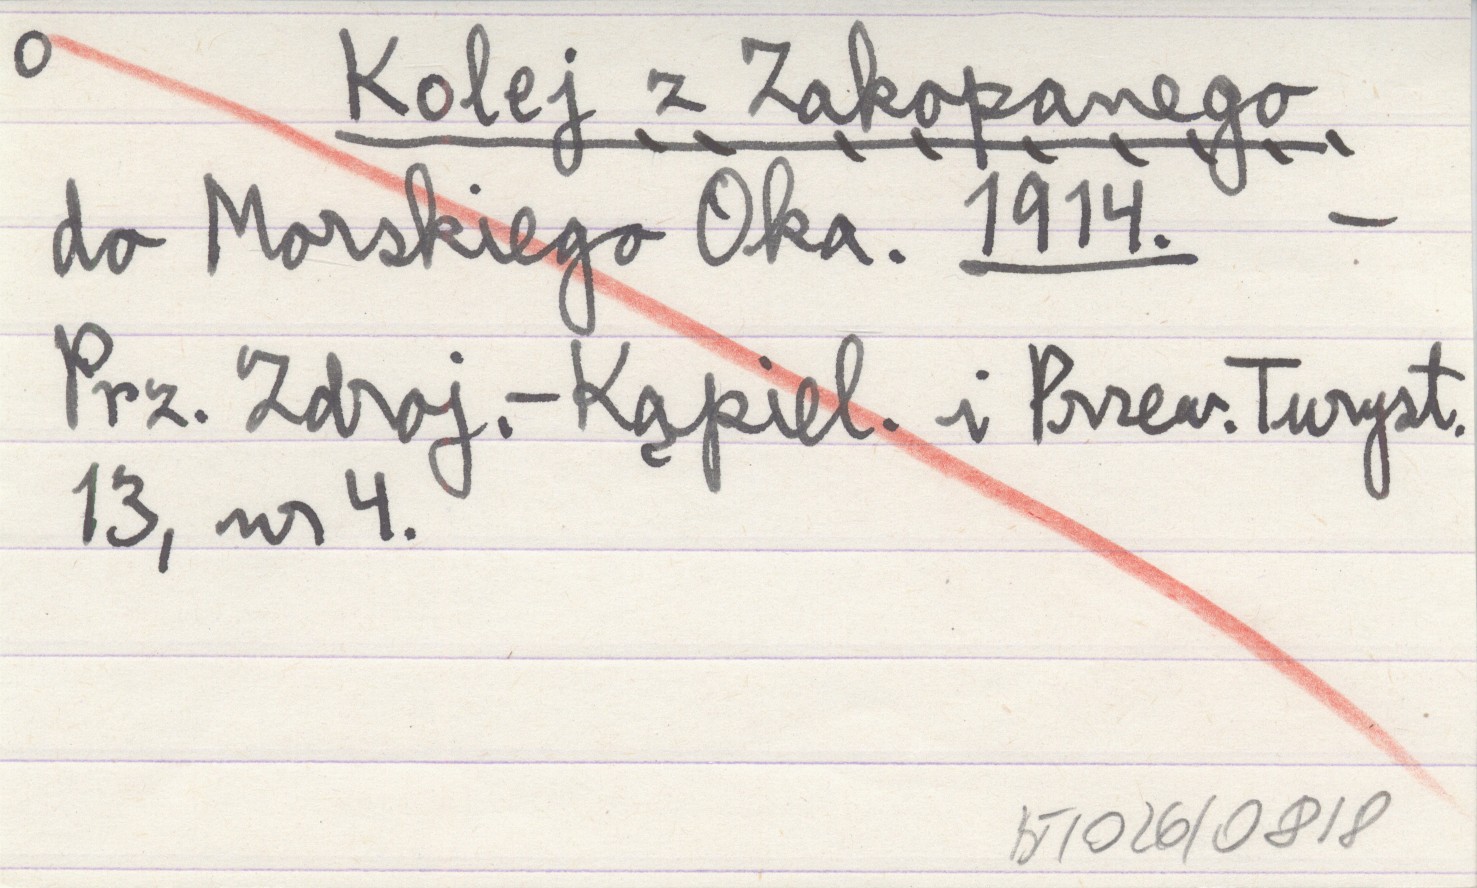 O Kolej z Zakopanego
do Morskiego Oka. 1914. –
Prz. Zdroj.-Kąpiel. i Przew. Turyst.
13, nr 4.